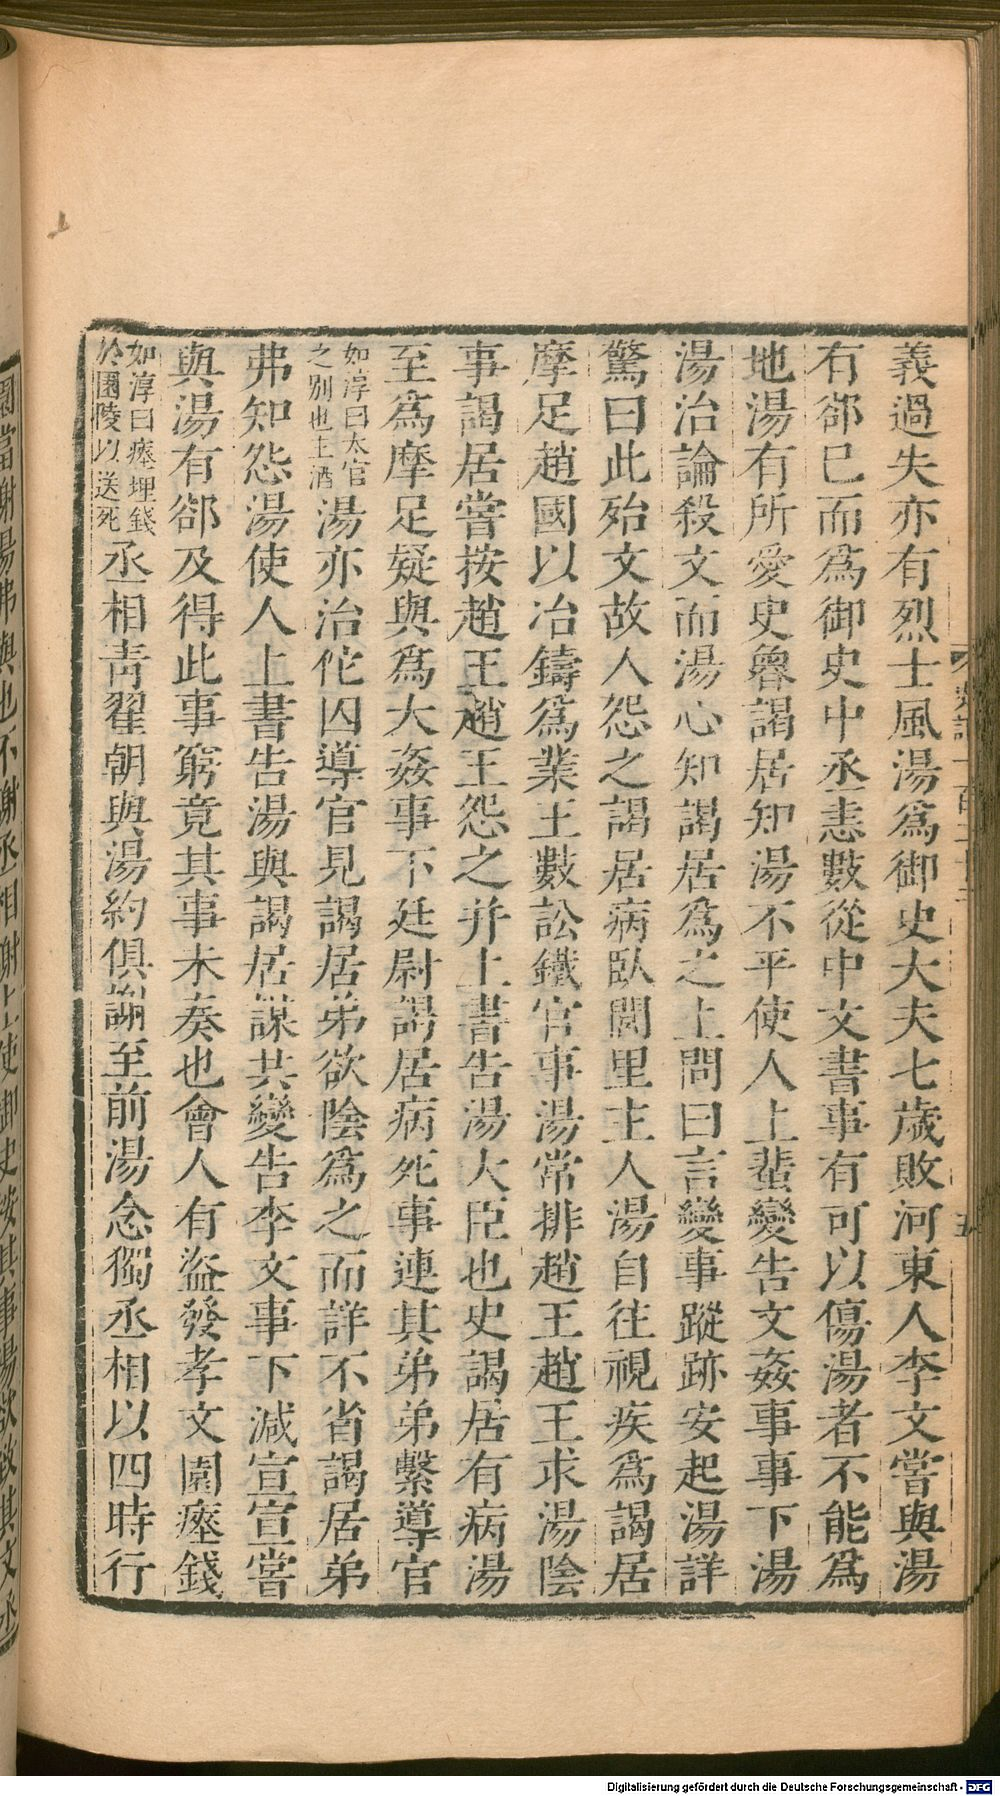 義過失亦有烈士風湯爲御史大夫七歲敗河東人李文嘗與湯
有郤已而爲御史中丞恚數從中文書事有可以傷湯者不能爲
地湯有所愛史魯謁居知湯不平使人上蜚變告文姦事事下湯
湯治論殺文而湯心知謁居爲之上問曰言變事蹤跡安起湯詳
驚曰此殆文故人怨之謁居病臥閭里主人湯自往視疾爲謁居
摩足趙國以冶鑄爲業王數訟鐵官事湯常排趙王趙王求湯陰
事謁居嘗按趙王趙王怨之并上書告湯大臣也史謁居有病湯
至爲摩足疑與爲大姦事下廷尉謁居病死事連其弟弟繫導官
如淳曰太官
之别也主酒
湯亦治佗囚導官見謁居弟欲陰爲之而詳不省謁居弟
弗知怨湯使人上書告湯與謁居謀共變告李文事下減宣宣嘗
與湯有郤及得此事窮竟其事未奏也會人有盜發孝文園瘞錢
如淳曰瘞埋錢
於園陵以送死
丞相青翟朝與湯約俱謝至前湯念獨丞相以四時行
Digitalisierung gefördert durch die Deutsche Forschungsgemeinschaft - DFG